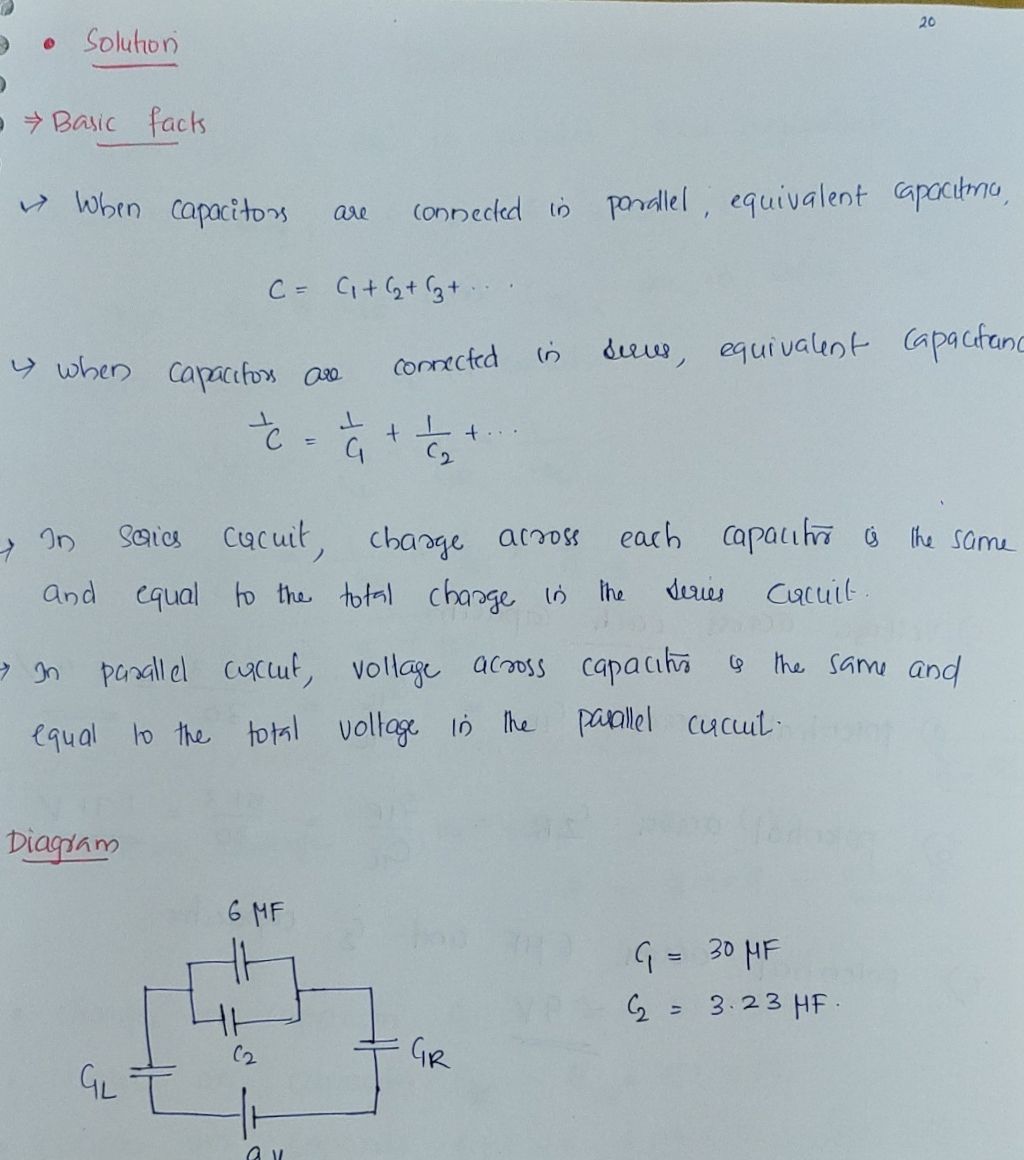 20
• Solution
⇒ Basic facts
↳ When capacitors are connected in parallel, equivalent
C = C₁ + C₂ + C₃ + ....
↳ when capacitors are connected in series, equivalent capacitanc
1/C = 1/C₁ + 1/C₂ + ...
→ In series circuit, charge across each capacitor is the same
and equal to the total charge in the series circuit.
→ In parallel circuit, voltage across capacitor is the same and
equal to the total voltage in the parallel circuit.
Diagram
6 μF
C₁ = 30 μF
C₂ = 3.23 μF.
C₂
C₁R
C₁L
9 V